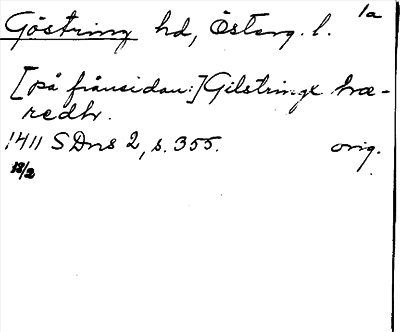 1a
Göstring hd, Österg. l.
[på frånsidan:] Gilstringx hæ-
redh.
1411 SDns 2, s. 355. orig.
13/2